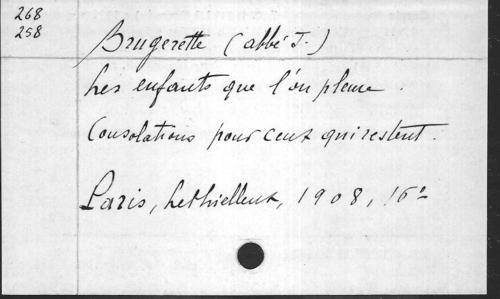 268
258
Brugerette (abbé J.)
Les enfants que l'on pleure.
Consolations pour ceux qui restent.
Paris, Lethielleux, 1908, 16º